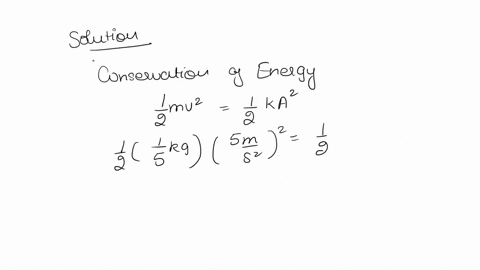 Solution
Conservation of Energy
1/2 mv² = 1/2 kA²
1/2 ( 1/5 kg ) ( 5m/s² )² = 1/2